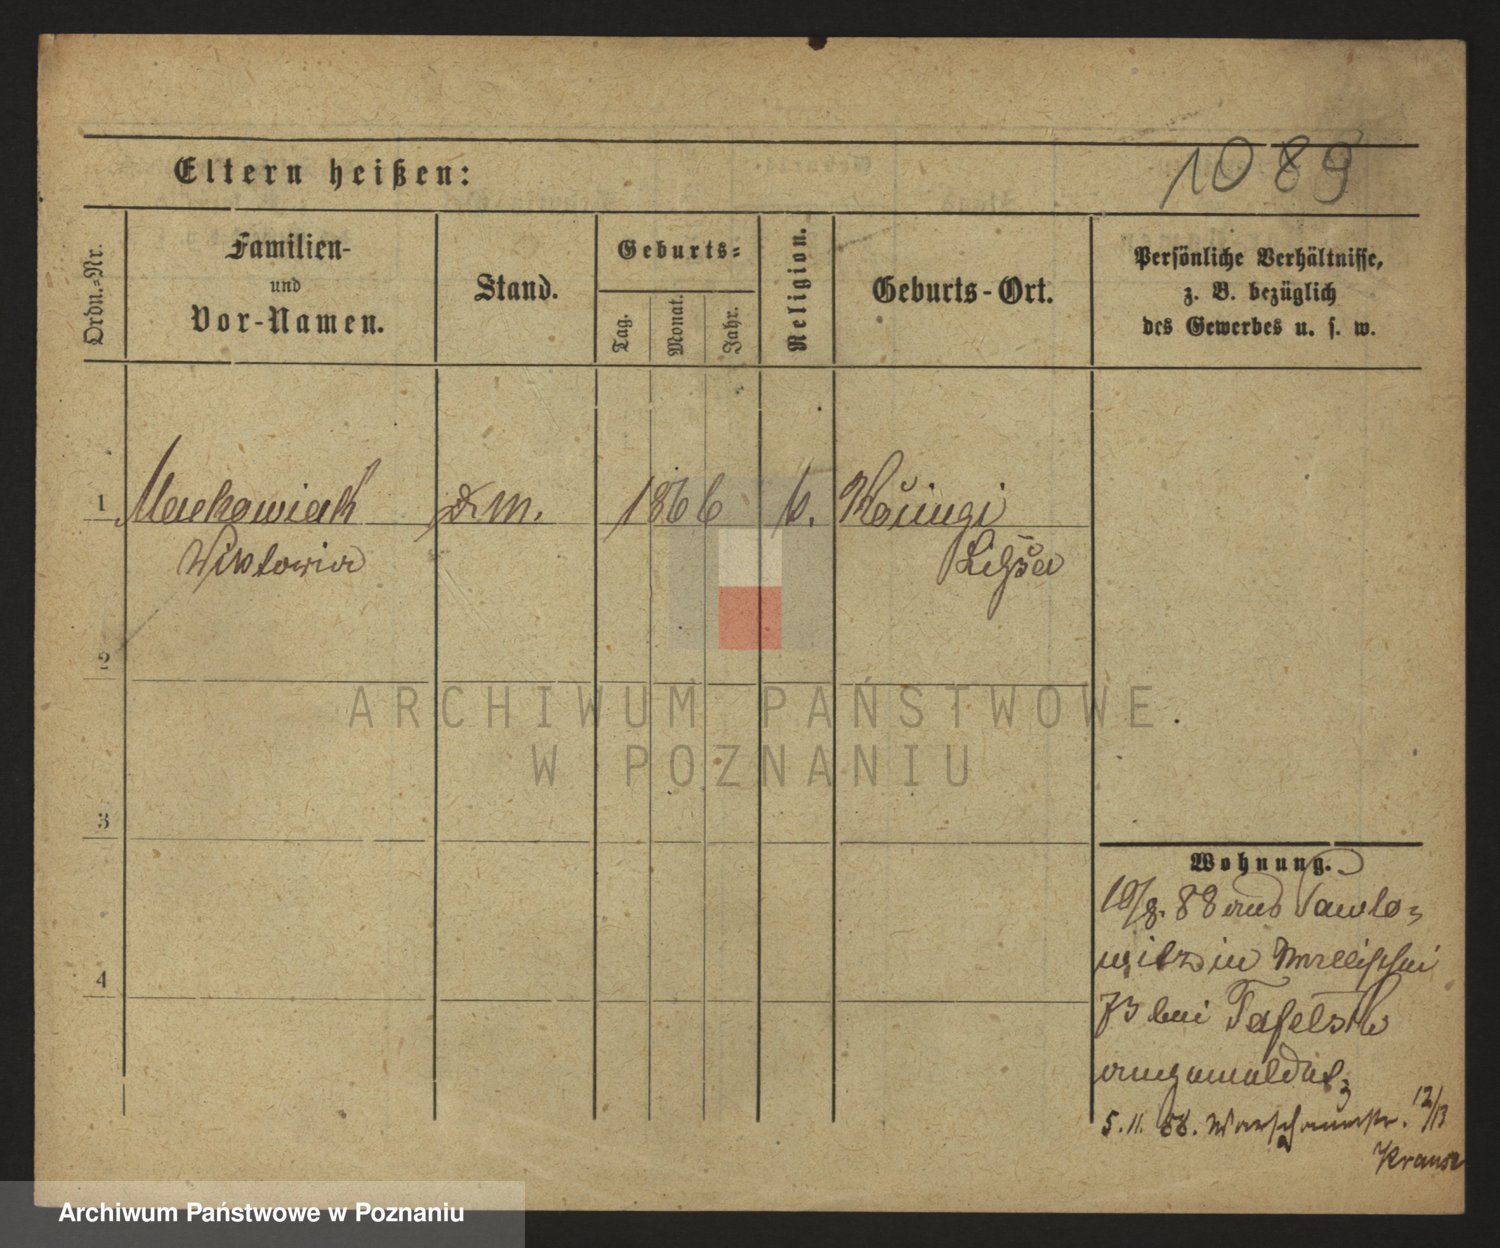 1089
Eltern heißen:
Ordn.-Nr.
Familien-
und
Vor-Namen.
Stand.
Geburts-
Tag.
Monat.
Jahr.
Religion.
Geburts-Ort.
Persönliche Verhältnisse,
z. B. bezüglich
des Gewerbes u. s. w.
1 Mackowiak D.M. 1866 k.
Wiktoria
2
3
4
Wohnung.
19/8. 88 aus Pawlo-
witz in Wallischei
73 bei Tafelski
angemeldet
5.11. 88. Warschauerstr. 12/13
Krause
ARCHIWUM PAŃSTWOWE
W POZNANIU
Archiwum Państwowe w Poznaniu